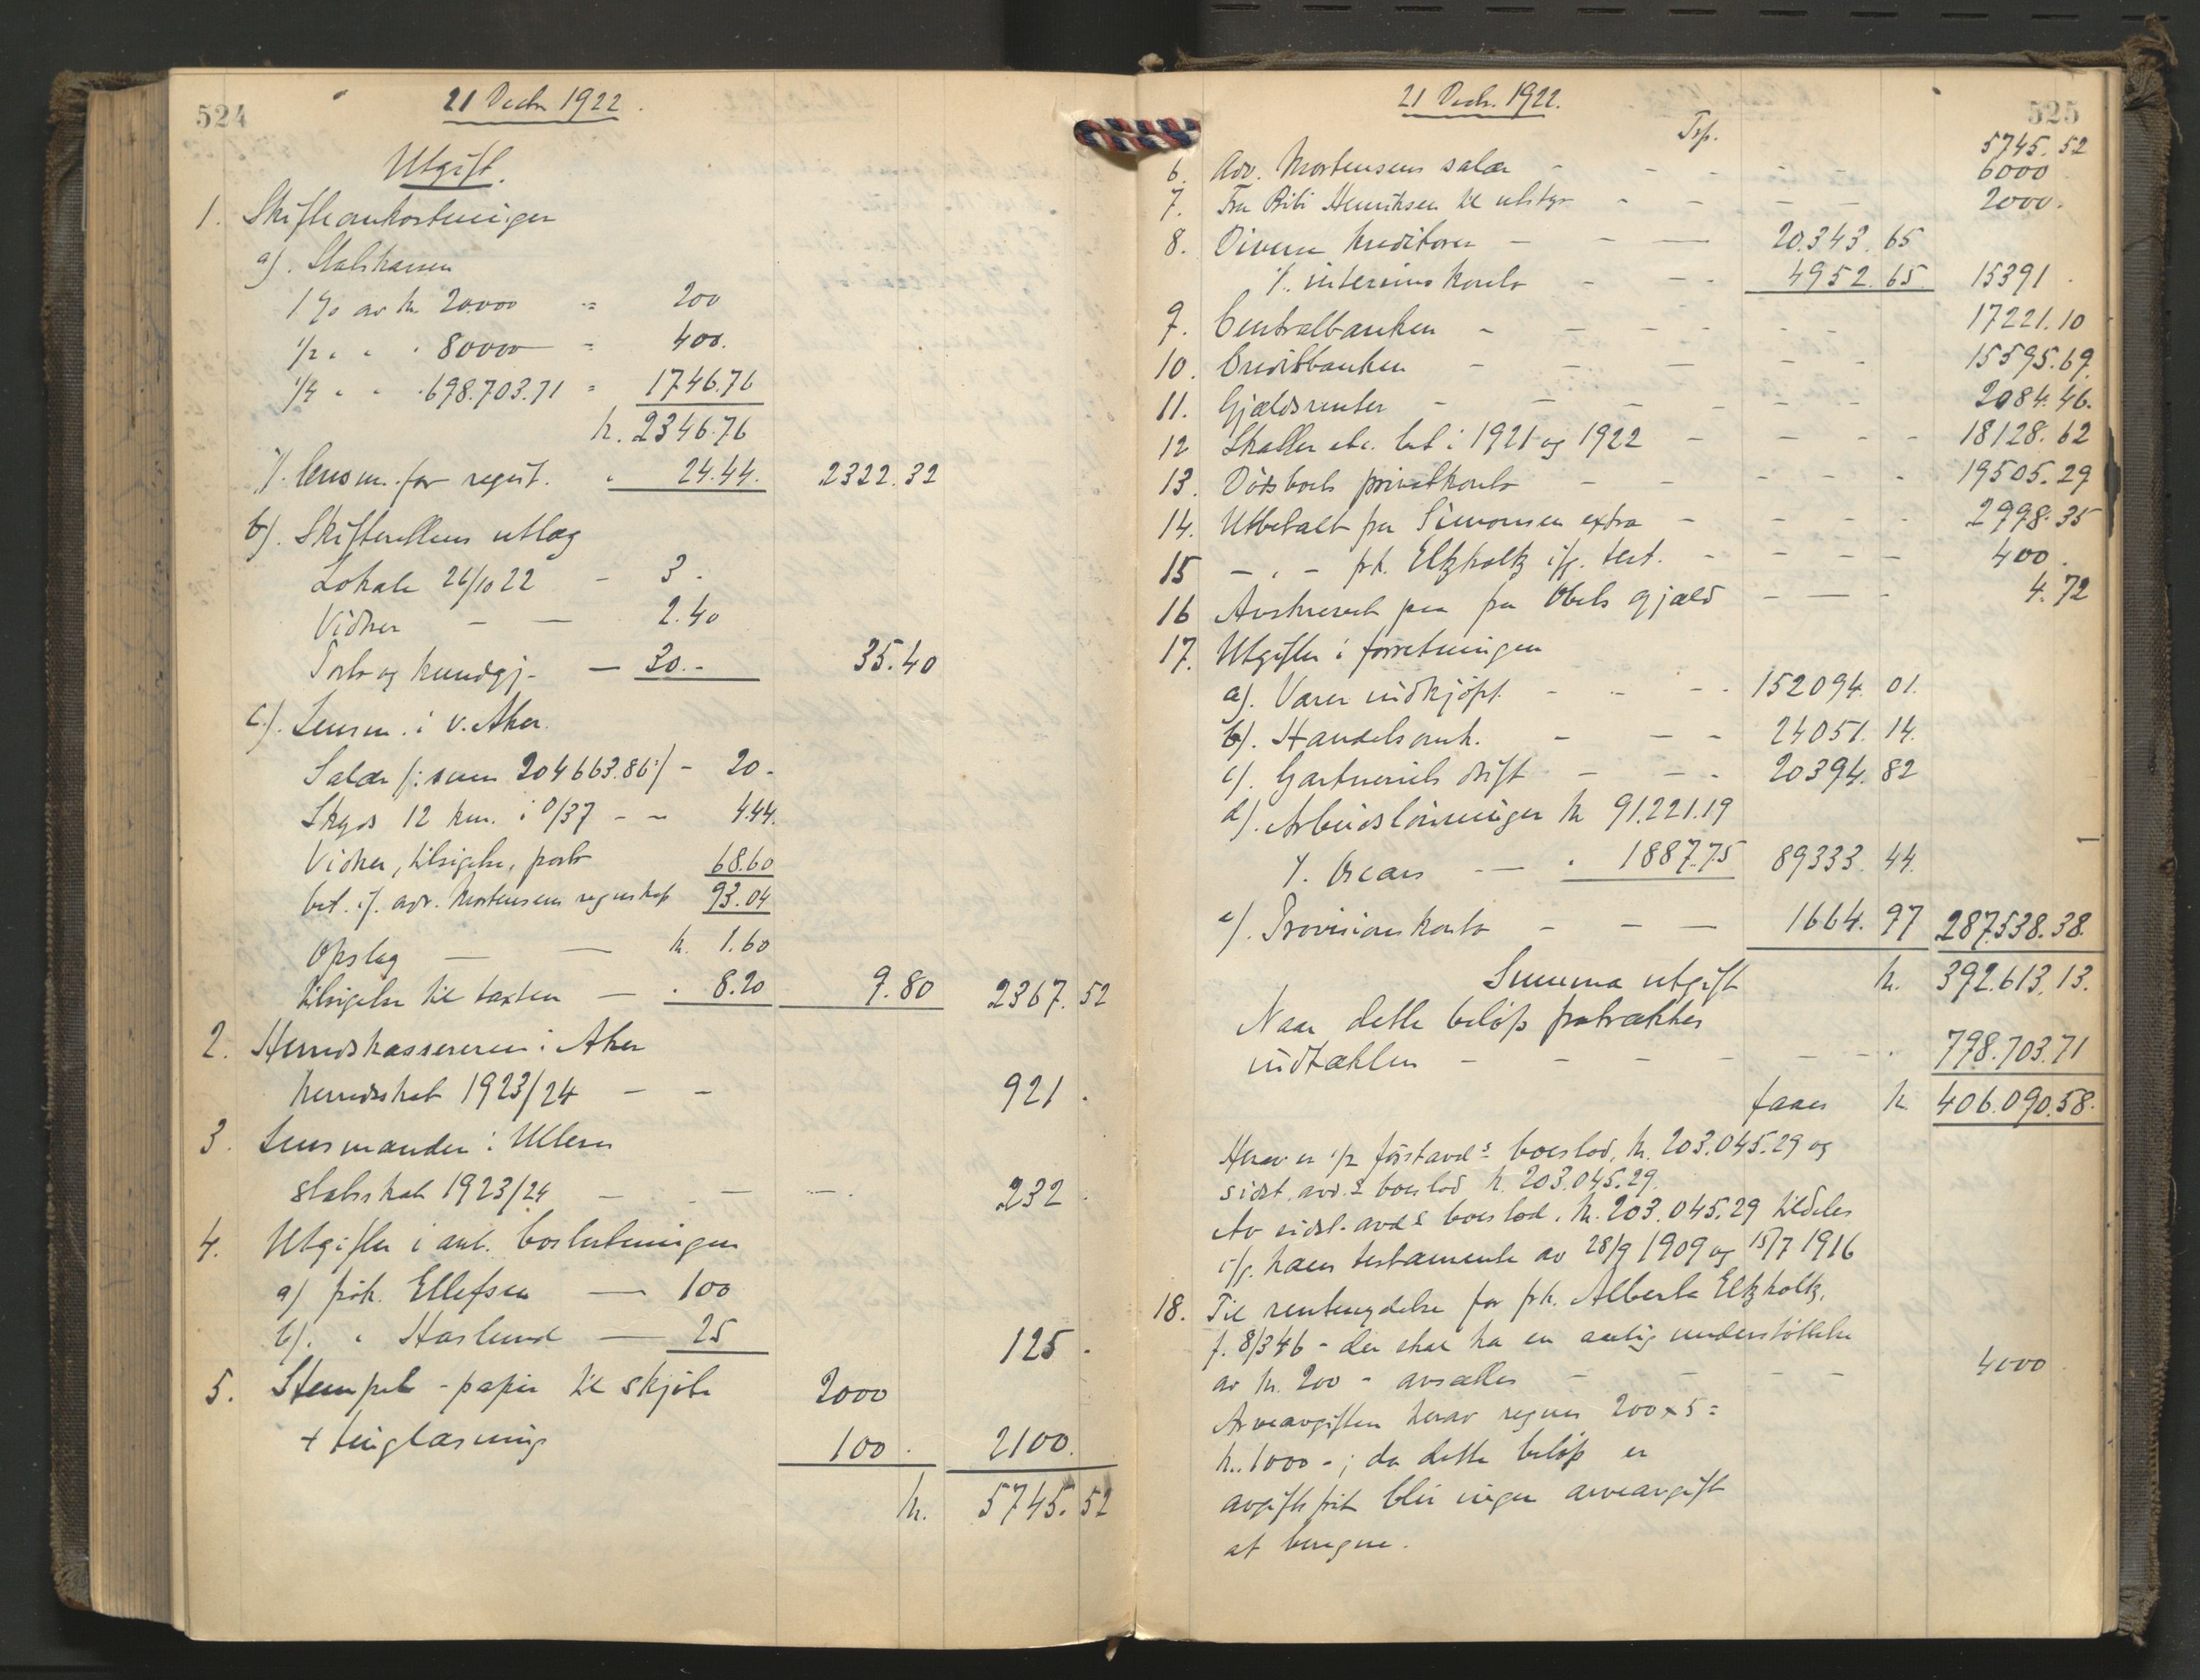 524
21 Decbr 1922.
Utgift.
1. Skifteomkostninger
a). Statskassen
1 % av kr. 20.000 = 200
1/2 " " " 80000 = 400.
1/4 " " " 698.703.71 = 1746.76
kr. 2346.76
÷ lensm. for regist. " 24.44. 2322.32
b). Skifterettens utlæg
Lokale 26/10 22 - 3.
Vidner - - 2.40
Porto og kundgj. - 30.- 35.40
c). Lensm. i v. Aker.
Salær /: sum 204663.86 :/ - 20.-
Skyds 12 km. i 0/37 - - 4.44.
Vidner, tilsigelse, porto 68.60
bet. if. adv. Mortensens regnskap 93.04
Opslag - - kr. 1.60
tilsigelse til taxten - " 8.20 9.80 2367.52
2. Herredskassereren i Aker
herredsskat 1923/24 - - 921.
3. Lensmanden i Ullern
statsskat 1923/24 - - - 232.
4. Utgifter i anl. bortsetningen
a) prok. Ellefsen - 100
b). " Haslund - 25 125.
5. Stemplet-papir til skjøte 2000
+ tinglæsning 100. 2100.
kr. 5745.52
525
21 Decb. 1922.
Trp. 5745.52
6. Adv. Mortensens salær - - - - - 6000
7. Fru Bibi Henriksen til utstyr - - - - 2000.
8. Diverse kreditorer - - - 20.343.65
÷ interimskonto - - - 4952.65. 15391.
9. Centralbanken - - - - - 17221.10
10. Creditbanken - - - - - 15595.69.
11. Gjældsrenter - - - - - 2084.46.
12 Skatter etc. bet. i 1921 og 1922 - - - - 18128.62
13. Dødsboets privatkonto - - - - - 19505.29
14. Utbetalt fru Simonsen extra - - - - 2998.35
15 - " - frk. Eltzholtz if. test. - - - - 400.
16 Avskrevet paa fru Obels gjæld - - - 4.72
17. Utgifter i forretningen
a). Varer indkjøpt. - - - - 152094.01.
b). Handelsomk. - - - 24051.14.
c). Gartneriets drift - - - 20394.82
d). Arbeidslønninger kr 91.221.19
÷ Oscars - - " 1887.75 89333.44.
e). Provisionskonto - - - 1664.97 287.538.38.
Summa utgift kr. 392.613.13.
Naar dette beløp fratrækkes
indtækten - - - - - - - 798.703.71
faaes kr 406.090.58.
Herav er 1/2 førstavd's boeslod, kr. 203.045.29 og
sidst. avd.s boeslod kr. 203.045.29.
Av sidst. avd.s boeslod, kr. 203.045.29 tildeles
if. hans testamente av 28/9 1909 og 15/7 1916
18. Til rentenydelse for frk. Alberta Eltzholtz,
f. 8/3 46 - der skal ha en aarlig understøttelse
av kr. 200 - avsættes - - - - 4000
Arveavgiften herav regnes 200 x 5 =
kr. 1000 - ; da dette beløp er
avgiftsfrit blir ingen arveavgift
at beregne.